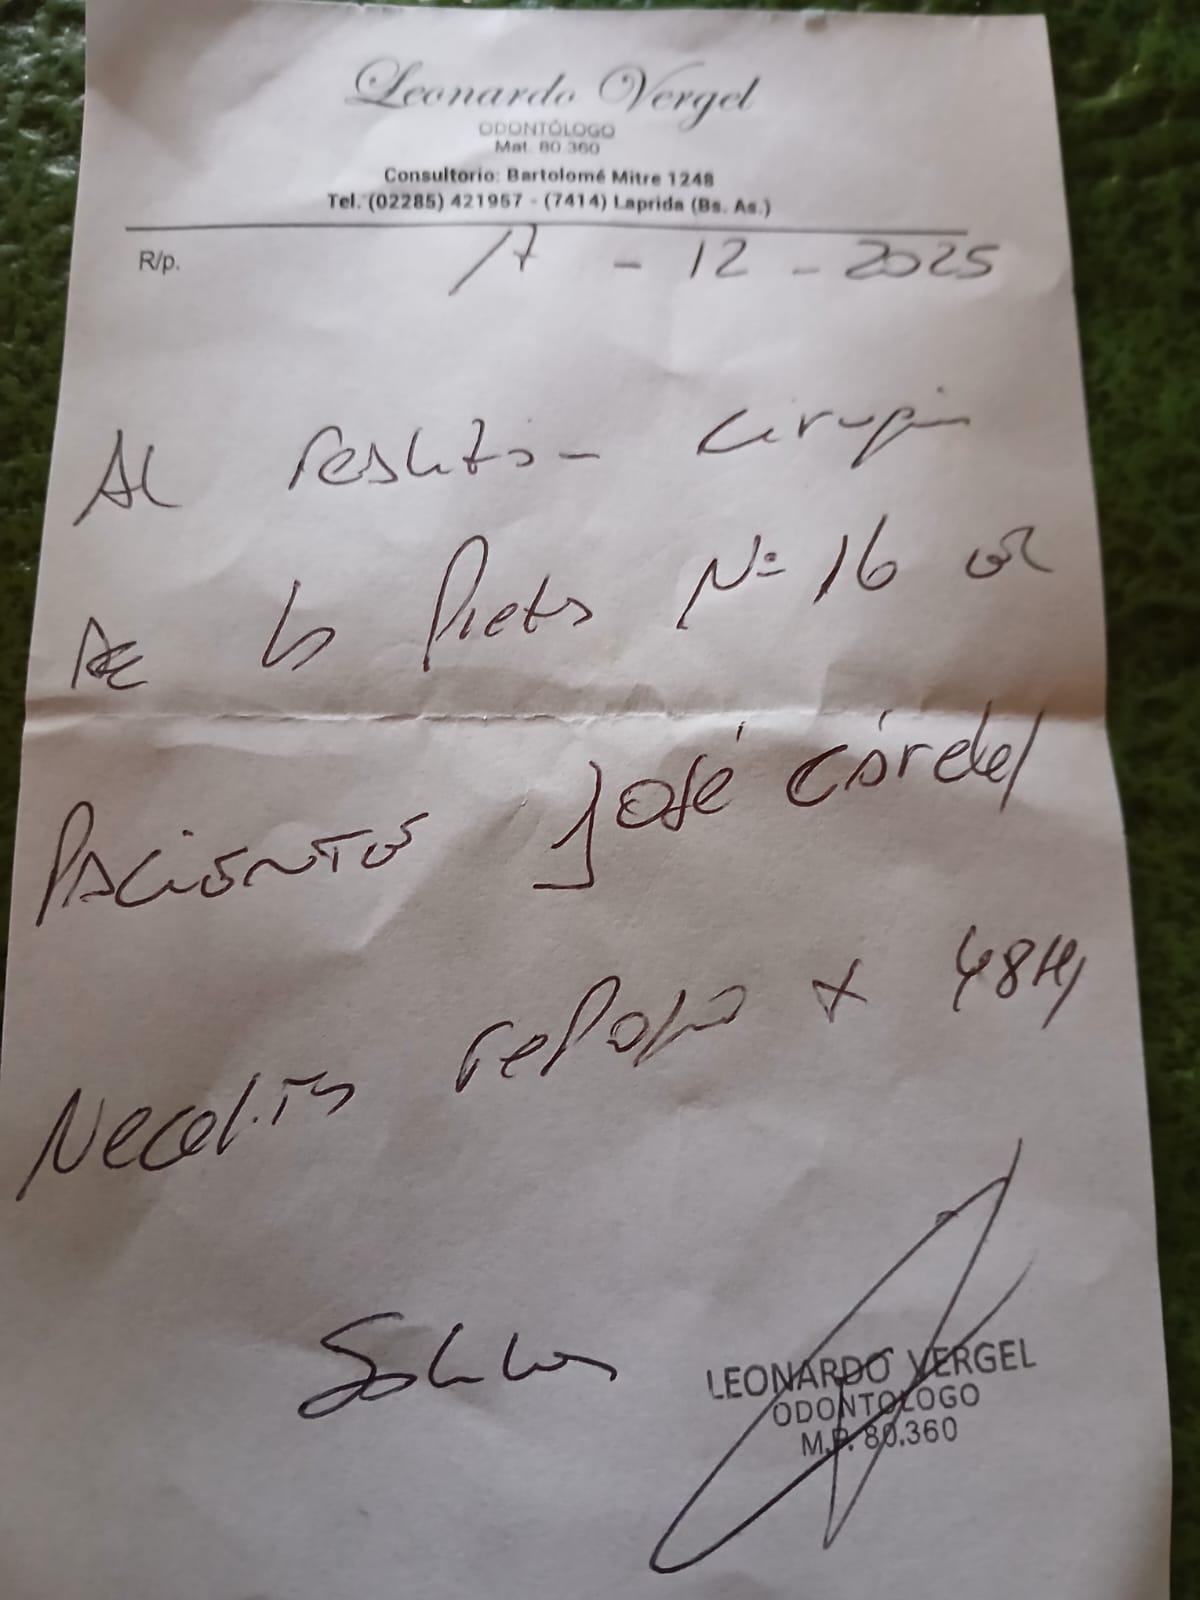 Leonardo Vergel
ODONTÓLOGO
Mat. 80.360
Consultorio: Bartolomé Mitre 1248
Tel. (02285) 421957 - (7414) Laprida (Bs. As.)
R/p. 17 - 12 - 2025
Al cirugía
de la Pieza Nº 16 al
Paciente José
Necesita reposo x 48 Hs
LEONARDO VERGEL
ODONTOLOGO
M.P. 80.360